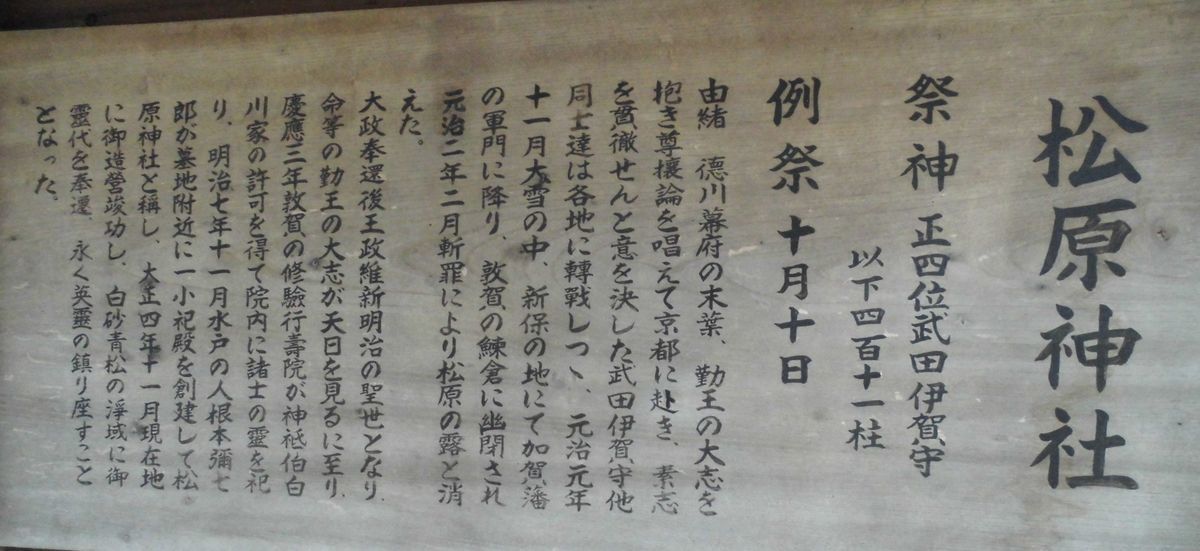 松原神社
祭神 正四位武田伊賀守
以下四百十一柱
例祭 十月十日
由緒 德川幕府の末葉、勤王の大志を
抱き尊攘論を唱えて京都に赴き、素志
を貫徹せんと意を決した武田伊賀守他
同士達は各地に轉戰しつゝ、元治元年
十一月大雪の中、新保の地にて加賀藩
の軍門に降り、敦賀の鰊倉に幽閉され
元治二年二月斬罪により松原の露と消
えた。
大政奉還後王政維新明治の聖世となり
命等の勤王の大志が天日を見るに至り
慶應三年敦賀の修驗行壽院が神祇伯白
川家の許可を得て院内に諸士の靈を祀
り、明治七年十一月水戸の人根本彌七
郎が墓地附近に一小祀殿を創建して松
原神社と稱し、大正四年十一月現在地
に御造營竣功し、白砂青松の淨域に御
靈代を奉遷、永く英靈の鎮り座すこと
となった。